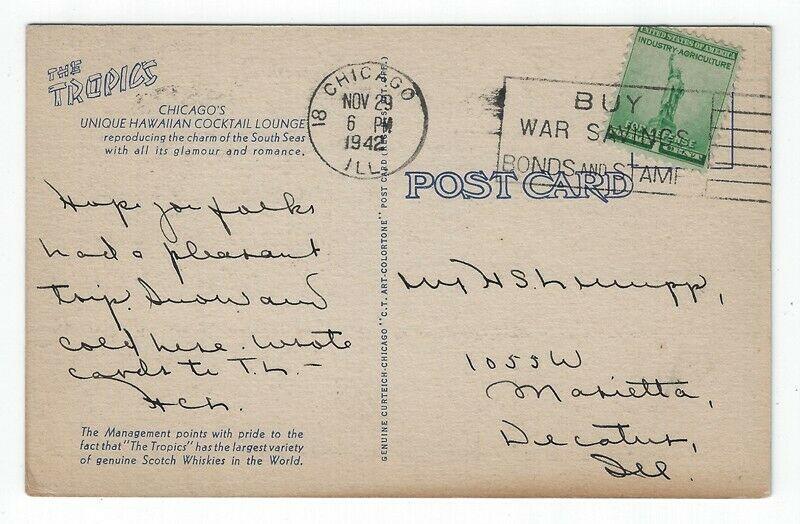 THE
TROPICS
CHICAGO'S
UNIQUE HAWAIIAN COCKTAIL LOUNGE
reproducing the charm of the South Seas
with all its glamour and romance.
Hope you folks
had a pleasant
trip. Snow and
cold here. Wrote
cards to T.L. –
HCL.
The Management points with pride to the
fact that "The Tropics" has the largest variety
of genuine Scotch Whiskies in the World.
GENUINE CURTEICH-CHICAGO "C.T. ART-COLORTONE" POST CARD (REG. U.S. PAT. OFF.)
CHICAGO
18
NOV 29
6 PM
1942
ILL.
BUY
WAR SAVINGS
BONDS AND STAMP
UNITED STATES OF AMERICA
INDUSTRY-AGRICULTURE
POST CARD
H S
1055 W
Marietta,
Decatur,
Ill.